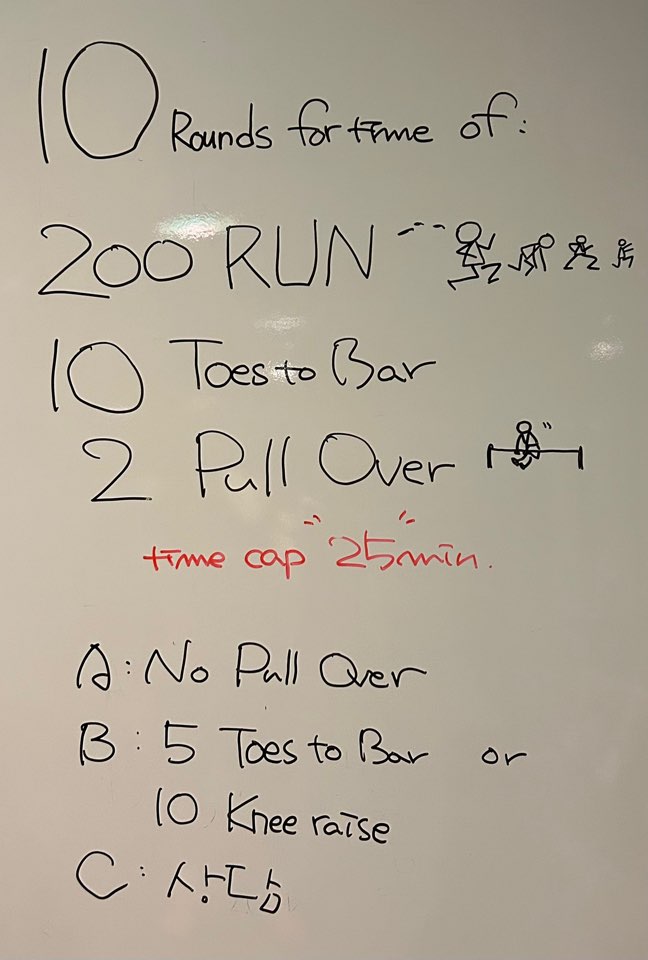 10 Rounds for time of:
200 RUN
10 Toes to Bar
2 Pull Over
time cap "25"min.
A: No Pull Over
B: 5 Toes to Bar or
10 Knee raise
C: 상담